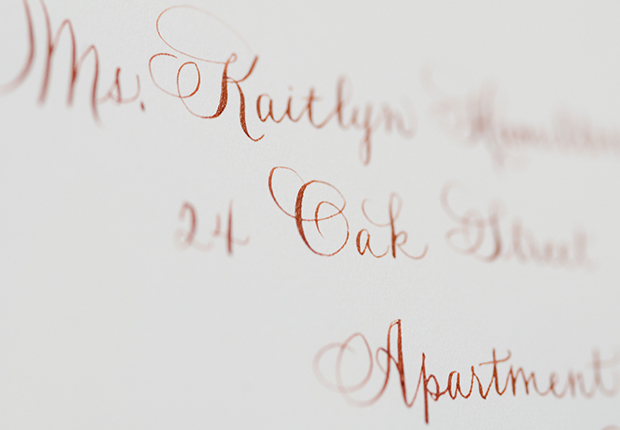 Ms. Kaitlyn Hamilton
24 Oak Street
Apartment